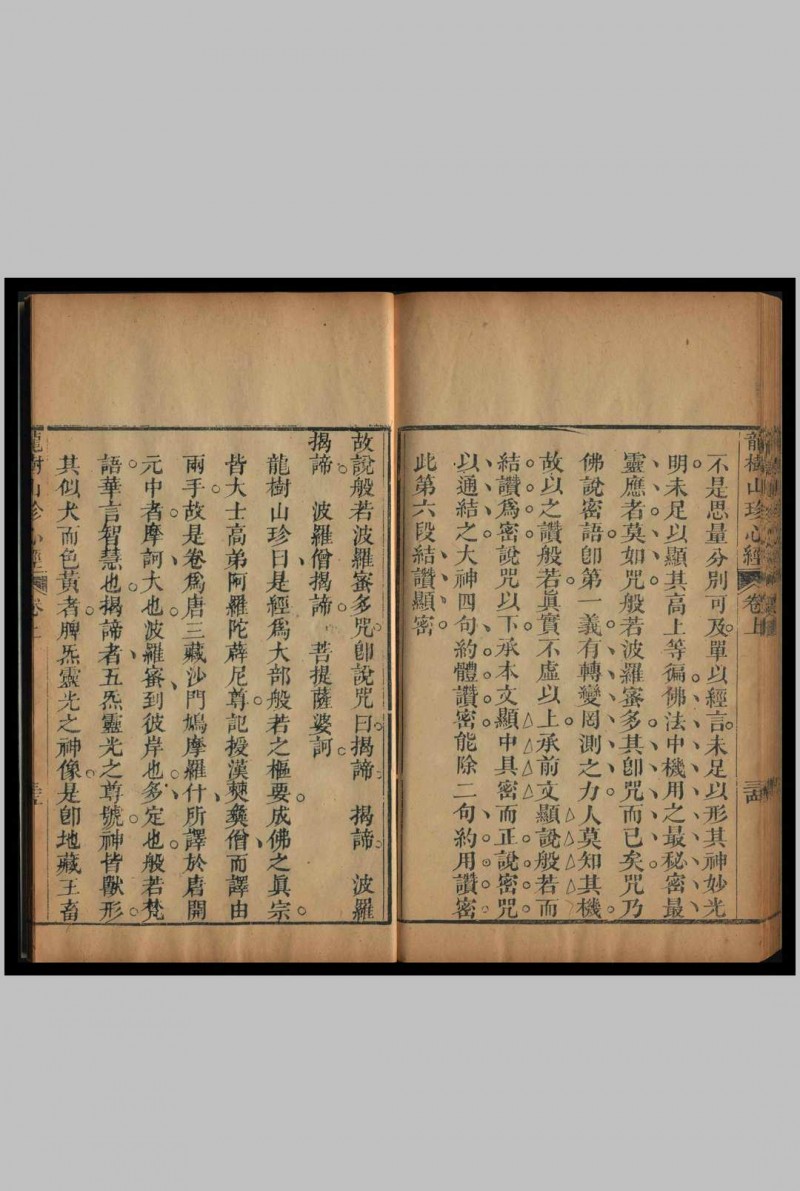 龍樹山珍心經 卷上
不是思量分別可及。單以經言。未足以形其神妙光
明。未足以顯其高上等徧。佛法中機用之最秘密最
靈應者。莫如咒。般若波羅蜜多。其卽咒而已矣。咒乃
佛說密語。卽第一義。有轉變罔測之力。人莫知其機。
故以之讚般若。眞實不虛以上。承前文顯說般若而
結讚爲密。說咒以下。承本文顯中具密。而正說密咒。
以通結之。大神四句。約體讚密。能除二句。約用讚密。
此第六段結讚顯密。
故說般若波羅蜜多咒。卽說咒曰。揭諦。 揭諦。 波羅
揭諦。 波羅僧揭諦。 菩提薩婆訶。
龍樹山珍曰。是經爲大部般若之樞要。成佛之眞宗。
昔大士高弟阿羅陀薜尼尊。記授漢僰彝僧而譯由
兩手。故是卷爲唐三藏沙門鳩摩羅什所譯。於唐開
元中者。摩訶大也。波羅蜜到彼岸也。多定也。般若梵
語。華言智慧也。揭諦者。五炁靈光之尊號。神皆獸形。
其似犬而色黃者。脾炁靈光之神像。是卽地藏王畜
龍樹山珍心經 卷上